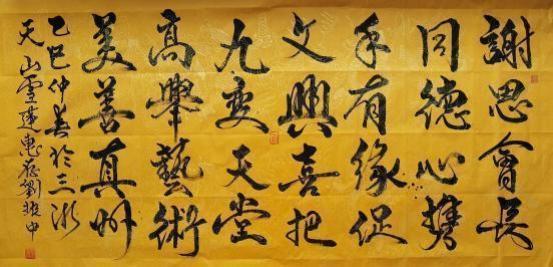 謝思會長
同德心携
手有緣促
文興喜把
九變天堂
高舉藝術
美善真州
乙巳仲春於三
天山雪蓮惠存劉振中